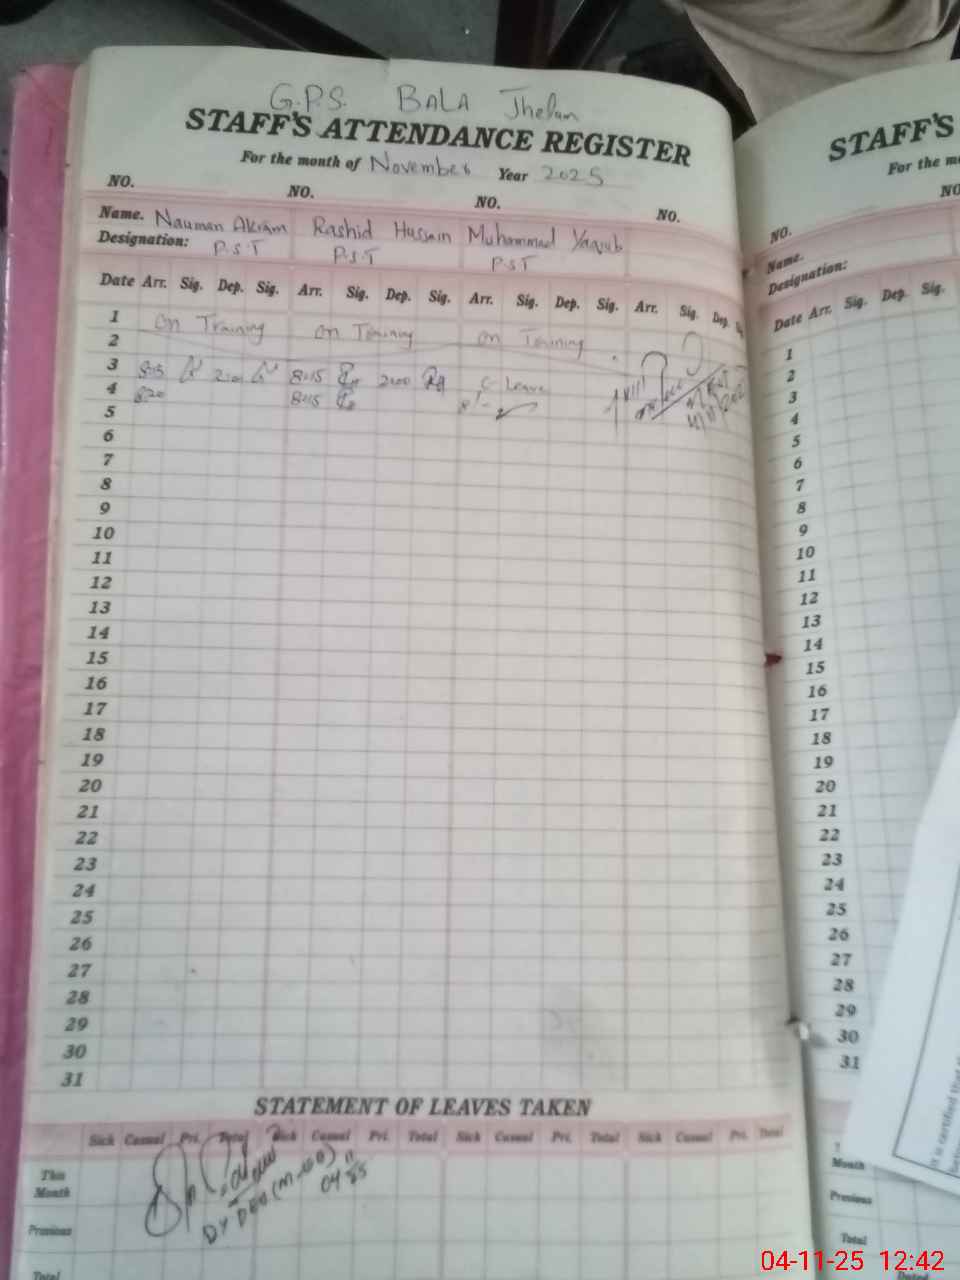 G.P.S. BALA Jhelum
STAFF'S ATTENDANCE REGISTER
For the month of November Year 2025
NO. NO. NO. NO.
Name. Nauman Akram Rashid Hussain Muhammad Yaqub
Designation: P.S.T P.S.T P.S.T
Date Arr. Sig. Dep. Sig. Arr. Sig. Dep. Sig. Arr. Sig. Dep. Sig. Arr. Sig. Dep.
1 On Training On Training On Training
2
3 8:15 2:00 8:15 2:00 C Leave
4 8:20 8:15
5
6
7
8
9
10
11
12
13
14
15
16
17
18
19
20
21
22
23
24
25
26
27
28
29
30
31
STATEMENT OF LEAVES TAKEN
Sick Casual Pri. Total Sick Casual Pri. Total Sick Casual Pri. Total Sick Casual Pri. Total
This Month
Previous
Total
DY DEO (M-EE)
04/11/25
STAFF'S
For the m
NO
NO.
Name.
Designation:
Date Arr. Sig. Dep. Sig.
1
2
3
4
5
6
7
8
9
10
11
12
13
14
15
16
17
18
19
20
21
22
23
24
25
26
27
28
29
30
31
Month
Previous
Total
It is certified that
04-11-25 12:42